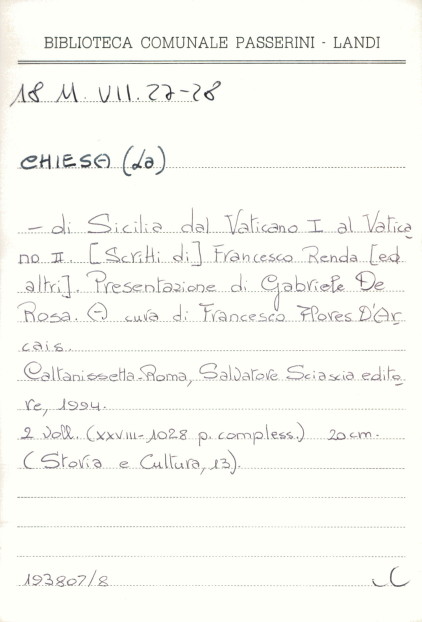 BIBLIOTECA COMUNALE PASSERINI - LANDI
18 M. VII. 27-28
CHIESA (La)
- di Sicilia dal Vaticano I al Vatica
no II. [Scritti di] Francesco Renda [ed
altri]. Presentazione di Gabriele De
Rosa. A cura di Francesco Flores D'Ar
cais.
Caltanissetta-Roma, Salvatore Sciascia edito
re, 1994.
2 voll. (XXVIII-1028 p. compless.) 20 cm.
(Storia e Cultura, 13).
193807/8